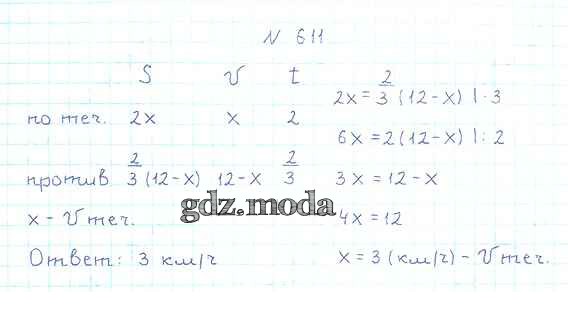 N 611
S v t
по теч. 2x x 2
против 2/3 (12-x) 12-x 2/3
x - v теч.
Ответ: 3 км/ч
2x = 2/3 (12-x) | · 3
6x = 2(12-x) | : 2
3x = 12 - x
4x = 12
x = 3 (км/ч) - v теч.
gdz.moda